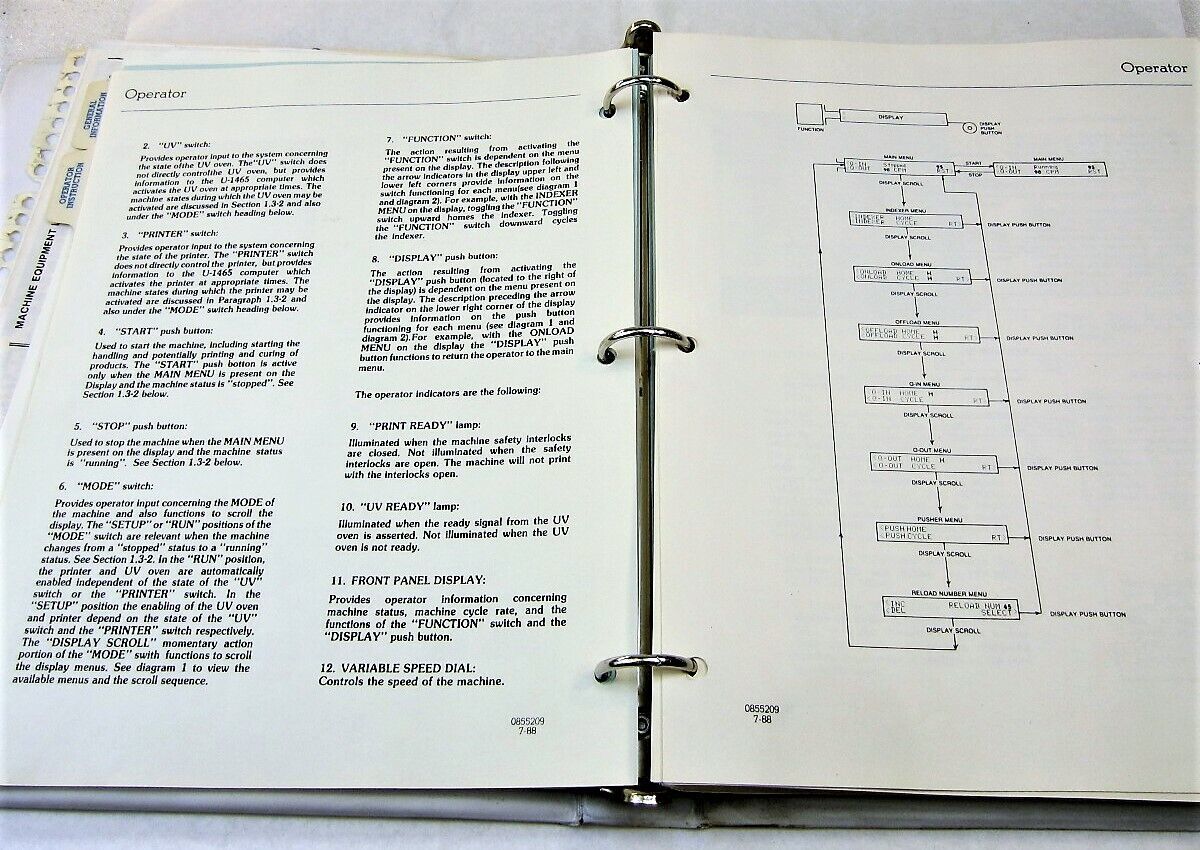 GENERAL
INFORMATION
OPERATOR
INSTRUCTION
MACHINE EQUIPMENT
Operator
2. "UV" switch:
Provides operator input to the system concerning
the state ofthe UV oven. The"UV" switch does
not directly controlthe UV oven, but provides
information to the U-1465 computer which
activates the UV oven at appropriate times. The
machine states during which the UV oven may be
activated are discussed in Section 1.3-2 and also
under the "MODE" switch heading below.
3. "PRINTER" switch:
Provides operator input to the system concerning
the state of the printer. The "PRINTER" switch
does not directly control the printer, but provides
information to the U-1465 computer which
activates the printer at appropriate times. The
machine states during which the printer may be
activated are discussed in Paragraph 1.3-2 and
also under the "MODE" switch heading below.
4. "START" push button:
Used to start the machine, including starting the
handling and potentially printing and curing of
products. The "START" push botton is active
only when the MAIN MENU is present on the
Display and the machine status is "stopped". See
Section 1.3-2 below.
5. "STOP" push button:
Used to stop the machine when the MAIN MENU
is present on the display and the machine status
is "running". See Section 1.3-2 below.
6. "MODE" switch:
Provides operator input concerning the MODE of
the machine and also functions to scroll the
display. The "SETUP" or "RUN" positions of the
"MODE" switch are relevant when the machine
changes from a "stopped" status to a "running"
status. See Section 1.3-2. In the "RUN" position,
the printer and UV oven are automatically
enabled independent of the state of the "UV"
switch or the "PRINTER" switch. In the
"SETUP" position the enabling of the UV oven
and printer depend on the state of the "UV"
switch and the "PRINTER" switch respectively.
The "DISPLAY SCROLL" momentary action
portion of the "MODE" swith functions to scroll
the display menus. See diagram 1 to view the
available menus and the scroll sequence.
7. "FUNCTION" switch:
The action resulting from activating the
"FUNCTION" switch is dependent on the menu
present on the display. The description following
the arrow indicators in the display upper left and
lower left corners provide information on the
switch functioning for each menu(see diagram 1
and diagram 2). For example, with the INDEXER
MENU on the display, toggling the "FUNCTION"
switch upward homes the indexer. Toggling
the "FUNCTION" switch downward cycles
the indexer.
8. "DISPLAY" push button:
The action resulting from activating the
"DISPLAY" push button (located to the right of
the display) is dependent on the menu present on
the display. The description preceding the arrow
indicator on the lower right corner of the display
provides information on the push button
functioning for each menu (see diagram 1 and
diagram 2).For example, with the ONLOAD
MENU on the display the "DISPLAY" push
button functions to return the operator to the main
menu.
The operator indicators are the following:
9. "PRINT READY" lamp:
Illuminated when the machine safety interlocks
are closed. Not illuminated when the safety
interlocks are open. The machine will not print
with the interlocks open.
10. "UV READY" lamp:
Illuminated when the ready signal from the UV
oven is asserted. Not illuminated when the UV
oven is not ready.
11. FRONT PANEL DISPLAY:
Provides operator information concerning
machine status, machine cycle rate, and the
functions of the "FUNCTION" switch and the
"DISPLAY" push button.
12. VARIABLE SPEED DIAL:
Controls the speed of the machine.
0855209
7-88
Operator
FUNCTION
DISPLAY
DISPLAY
PUSH
BUTTON
MAIN MENU
Q-IN Stopped 95
Q-OUT 90 CPM RST
START
STOP
MAIN MENU
Q-IN Running 95
Q-OUT 90 CPM RST
DISPLAY SCROLL
INDEXER MENU
INDEXER HOME
INDEXER CYCLE RT
DISPLAY PUSH BUTTON
DISPLAY SCROLL
ONLOAD MENU
ONLOAD HOME H
ONLOAD CYCLE RT
DISPLAY PUSH BUTTON
DISPLAY SCROLL
OFFLOAD MENU
OFFLOAD HOME H
OFFLOAD CYCLE H RT
DISPLAY PUSH BUTTON
DISPLAY SCROLL
Q-IN MENU
Q-IN HOME H
Q-IN CYCLE RT
DISPLAY PUSH BUTTON
DISPLAY SCROLL
Q-OUT MENU
Q-OUT HOME H
Q-OUT CYCLE RT
DISPLAY PUSH BUTTON
DISPLAY SCROLL
PUSHER MENU
PUSH HOME
PUSH CYCLE RT
DISPLAY PUSH BUTTON
DISPLAY SCROLL
RELOAD NUMBER MENU
INC RELOAD NUM 45
DEC SELECT
DISPLAY PUSH BUTTON
DISPLAY SCROLL
0855209
7-88